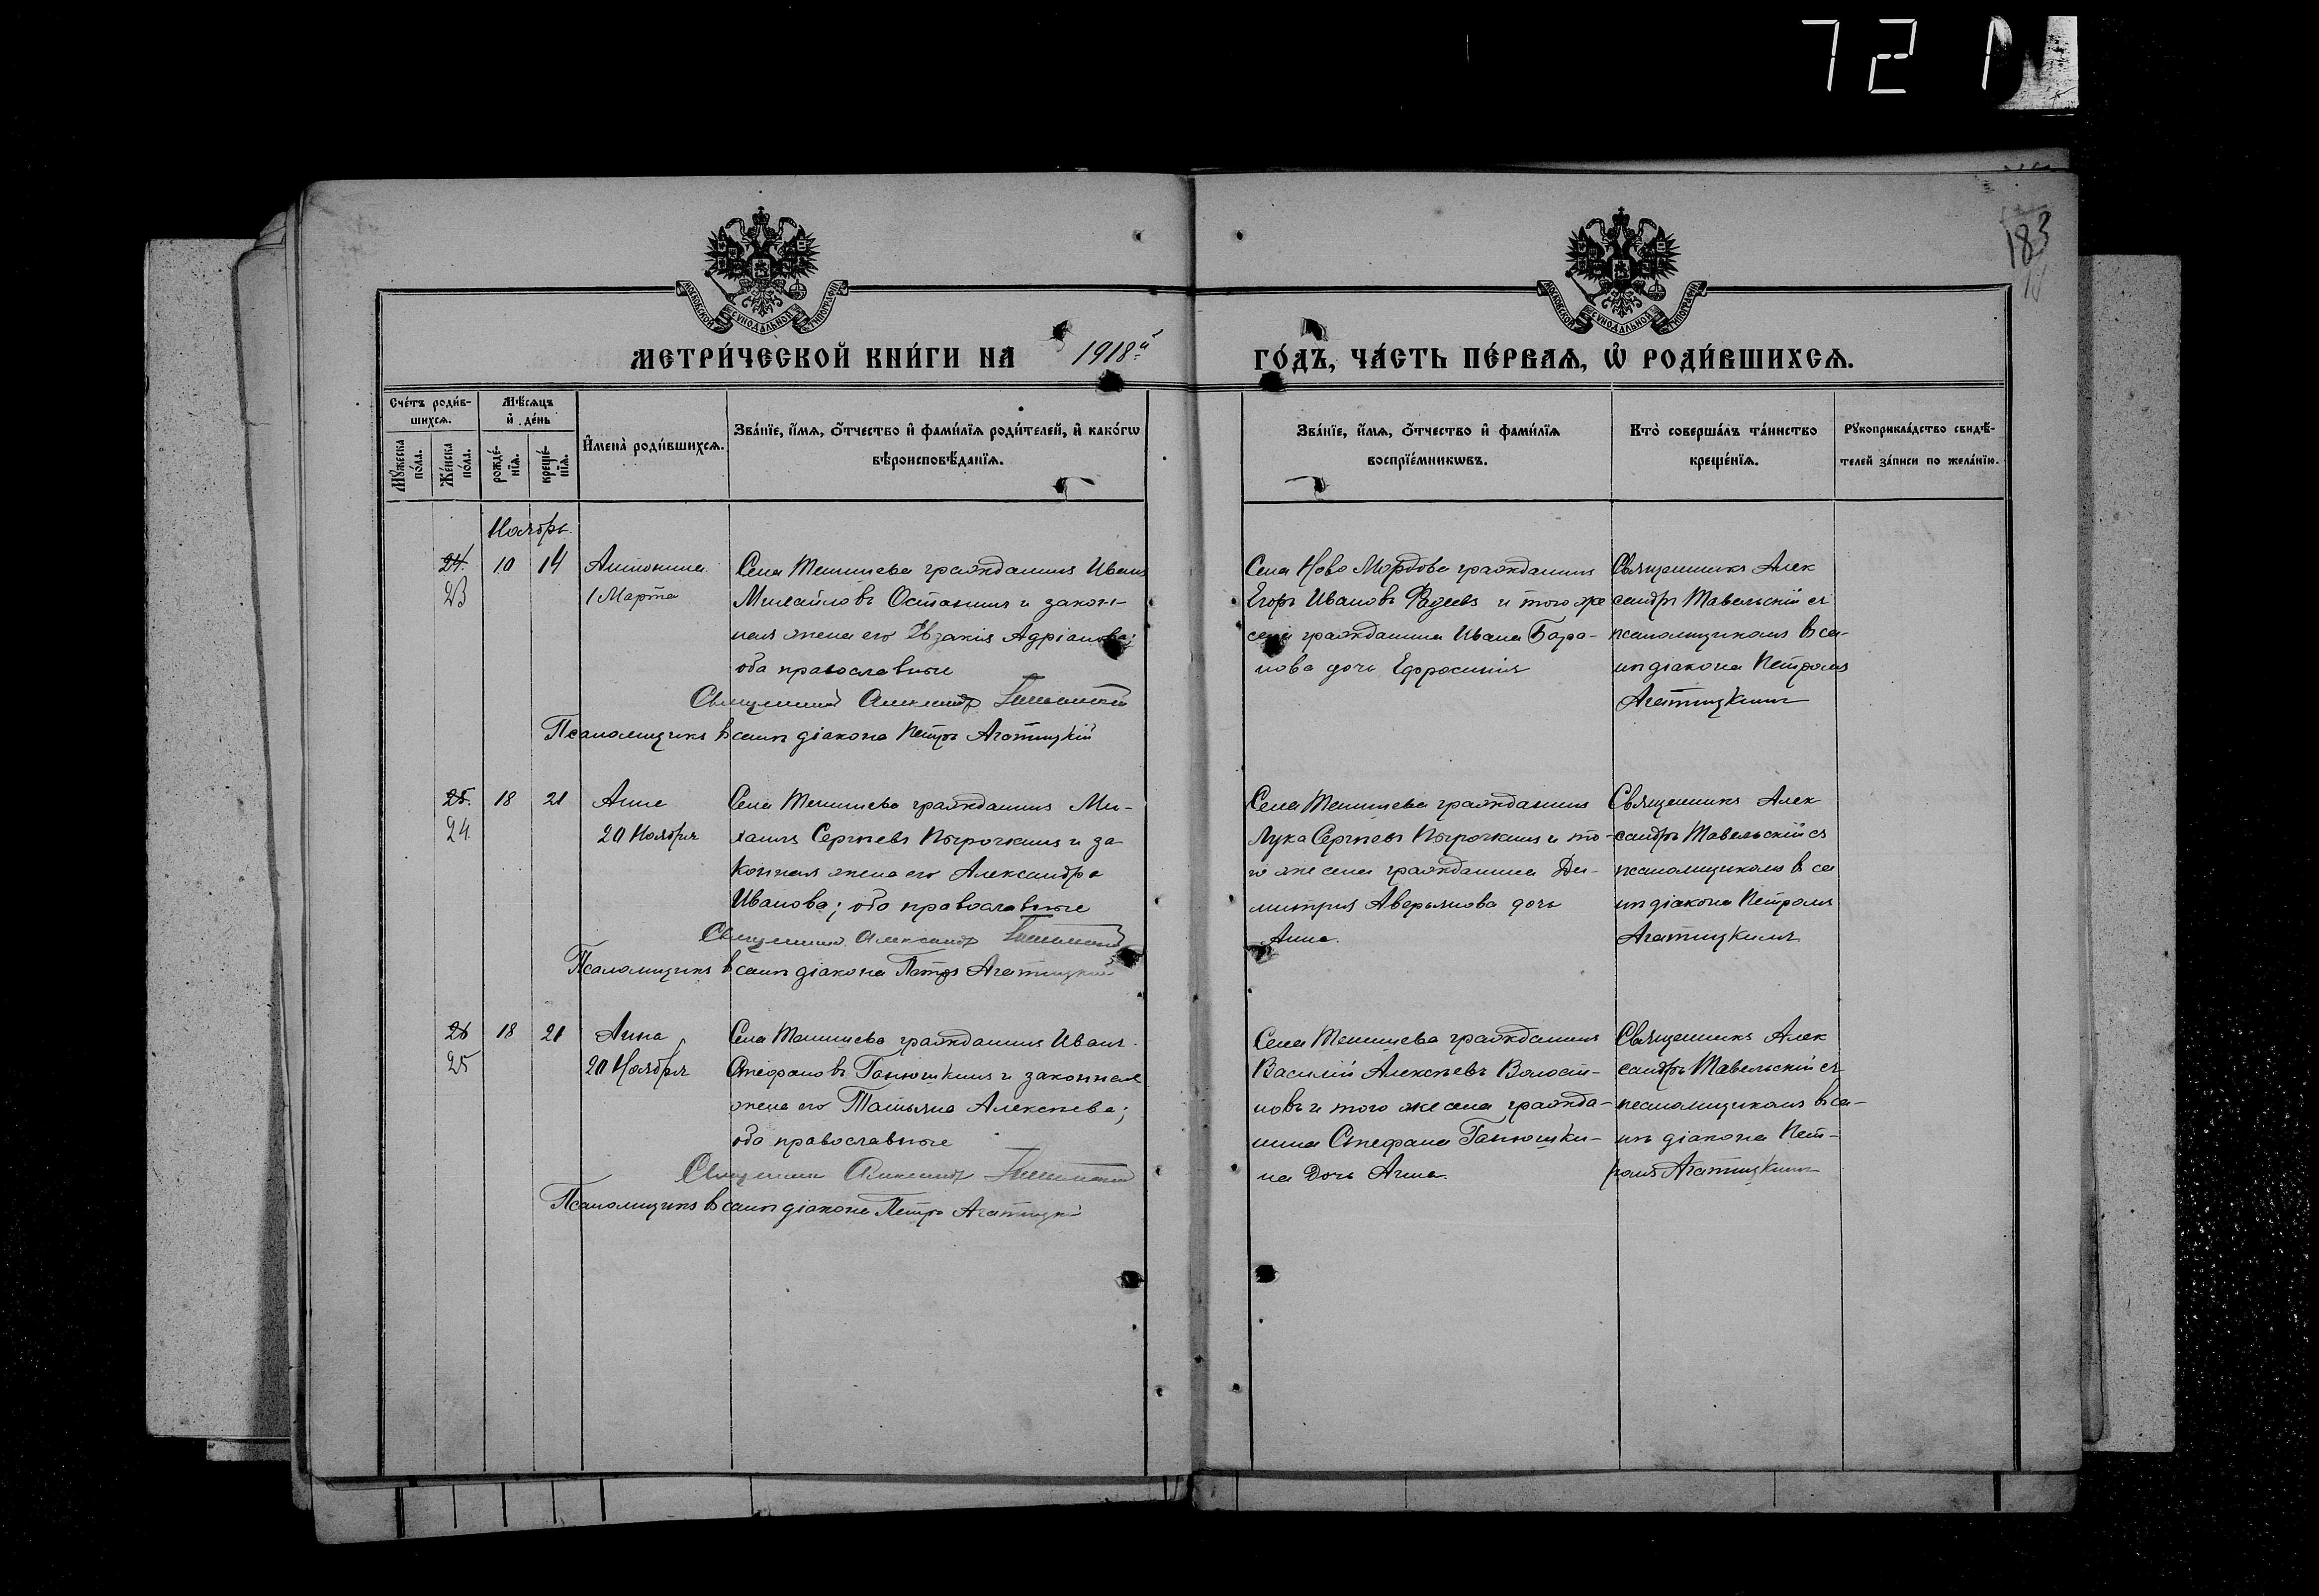 72
183
МОСКОВСКОЙ СѴНОДАЛЬНОЙ ТИПОГРАФІИ
МОСКОВСКОЙ СѴНОДАЛЬНОЙ ТИПОГРАФІИ
МЕТРИ́ЧЕСКОЙ КНИ́ГИ НА 1918й ГО́ДЪ, ЧА́СТЬ ПЕ́РВАѦ, Ѽ РОДИ́ВШИХСѦ.
Сче́тъ роди́в-
шихсѧ.
Мꙋжеска по́ла.
Же́нска по́ла.
Мѣ́сѧцъ и҆ де́нь
рожде́-
нїѧ.
креще́-
нїѧ.
И҆мена̀ роди́вшихсѧ.
Зва́нїе, и҆́мѧ, ѻ҆́тчество и҆ фами́лїѧ роди́телей, и҆ како́гѡ
вѣроисповѣ́данїѧ.
Зва́нїе, и҆́мѧ, ѻ҆́тчество и҆ фами́лїѧ
воспрїе́мникѡвъ.
Кто̀ соверша́лъ та́инство
креще́нїѧ.
Рꙋкоприкла́дство свидѣ́-
телей за́писи по жела́нїю.
Ноябрь.
24.
23
10
14
Антонина
1 Марта
Села Тенишева гражданинъ Иванъ
Михайловъ Останинъ и закон-
ная жена его Адріанова;
оба православные
Священникъ Александръ Тавельскій
Псаломщикъ в санѣ діакона Петръ Агатицкій
Села Ново Мордова гражданинъ
Егоръ Ивановъ Фадеевъ и того же
села гражданина Ивана Бара-
нова дочь Ефросинія
Священникъ Алек
сандръ Тавельскій съ
псаломщикомъ в са-
нѣ діакона Петромъ
Агатицкимъ
25.
24.
18
21
Анна
20 Ноября
Села Тенишева гражданинъ Ми-
хаилъ Сергѣевъ Пѣрочкинъ и за
конная жена его Александра
Иванова; оба православные
Священникъ Александръ Тавельскій
Псаломщикъ в санѣ діакона Петръ Агатицкій
Села Тенишева гражданинъ
Лука Сергѣевъ Пѣрочкинъ и то-
го же села гражданина Ди-
митрія Аверьянова дочь
Анна.
Священникъ Алек
сандръ Тавельскій съ
псаломщикомъ в са
нѣ діакона Петромъ
Агатицкимъ
26
25
18
21
Анна
20 Ноября
Села Тенишева гражданинъ Иванъ
Стефановъ Ганюшкинъ и законная
жена его Татьяна Алексѣева;
оба православные
Священникъ Александръ Тавельскій
Псаломщикъ в санѣ діакона Петръ Агатицкій
Села Тенишева гражданинъ
Василій Алексѣевъ
и того же села гражда-
нина Стефана Ганюшки-
на дочь Анна.
Священникъ Алек
сандръ Тавельскій съ
псаломщикомъ в са-
нѣ діакона Пет-
ромъ Агатицкимъ